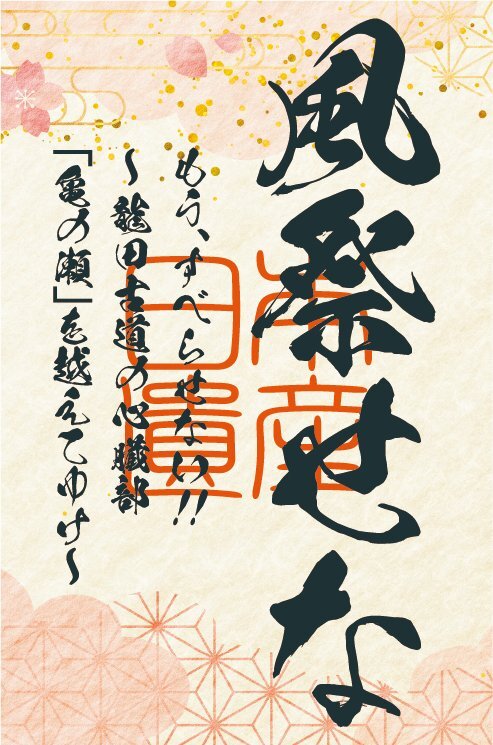 風祭せな
もう、すべらせない!!
～龍田古道の心臓部
「亀の瀬」を越えてゆけ～
日本遺産